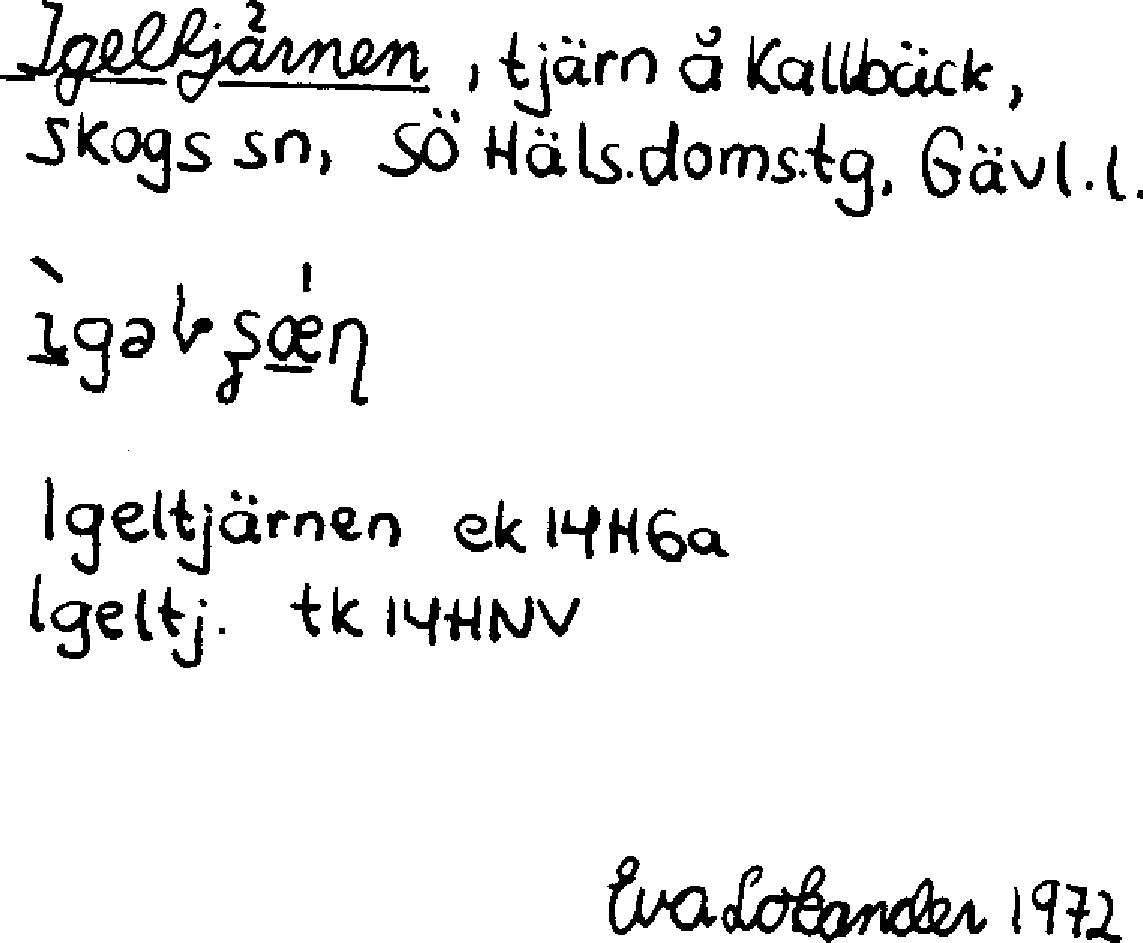 Igeltjärnen, tjärn å Kallbäck,
Skogs sn, SÖ Häls.doms.tg. Gävl.l.
Igeltjärnen ek 14H6a
Igeltj. tk 14HNV
Eva 1972